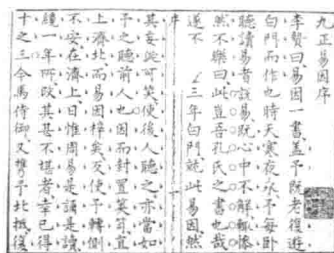 九正易因序
李贄曰易因一書蓋予既老復遊
白門而作也時天寒夜永予每卧
聽讀易者說易既心中不解輒慘
然不樂曰此豈吾孔氏之書也哉
遂不 三年白門就此易因然
序
其妄涎可笑使後人聽之亦當如
予之聽前人也因而封置笑可直
上濟北而易因梓矣及使予轉側
不安在濟上日惟周易是誦是讀
纔一年所改其甚不堪者幸已得
十之三今馬侍御又攜予北抵復